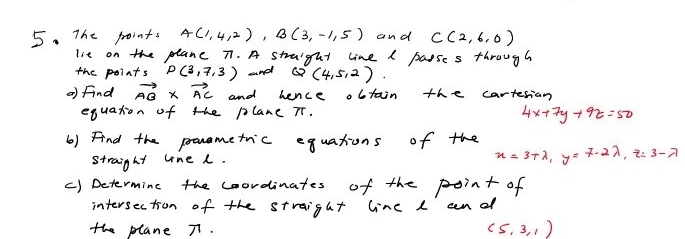 5. The points A(1,4,2), B(3,-1,5) and C(2,6,0)
lie on the plane π. A straight line l passes through
the points P(3,7,3) and Q(4,5,2).
a) Find AB × AC and hence obtain the cartesian
equation of the plane π.
4x+7y+9z=50
b) Find the parametric equations of the
straight line l.
x=3+λ, y=7-2λ, z=3-λ
c) Determine the coordinates of the point of
intersection of the straight line l and
the plane π.
(5,3,1)